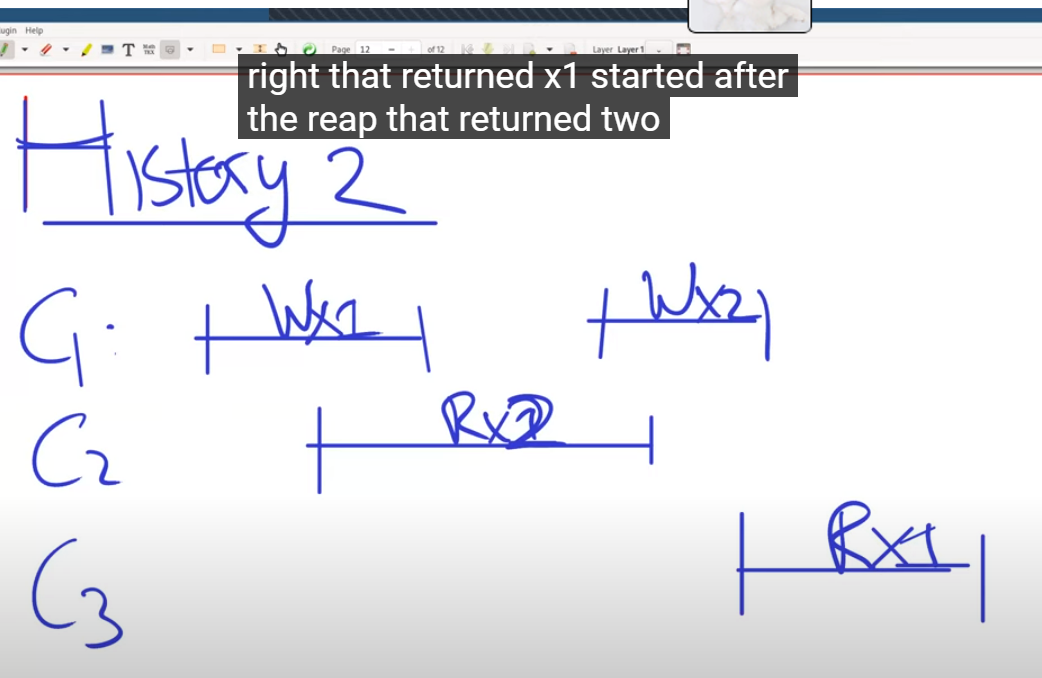 ugin Help
T Math TEX Page 12 of 12 Layer Layer 1
right that returned x1 started after
the reap that returned two
History 2
C1: Wx1 Wx2
C2 Rx2
C3 Rx1